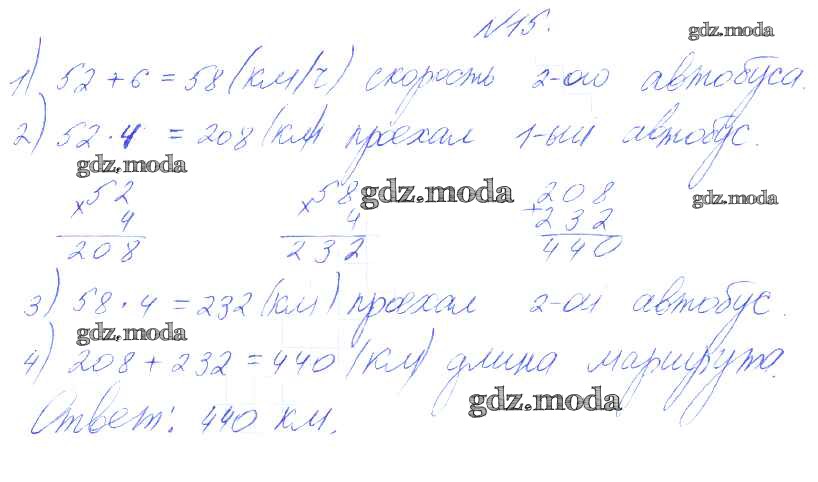 №15.
gdz.moda
1) 52 + 6 = 58 (км/ч) скорость 2-ого автобуса.
2) 52 · 4 = 208 (км) проехал 1-ый автобус.
gdz.moda
× 52 × 58 + 208
gdz.moda gdz.moda
4 4 232
208 232 440
3) 58 · 4 = 232 (км) проехал 2-ой автобус.
gdz.moda
4) 208 + 232 = 440 (км) длина маршрута.
gdz.moda
Ответ: 440 км.